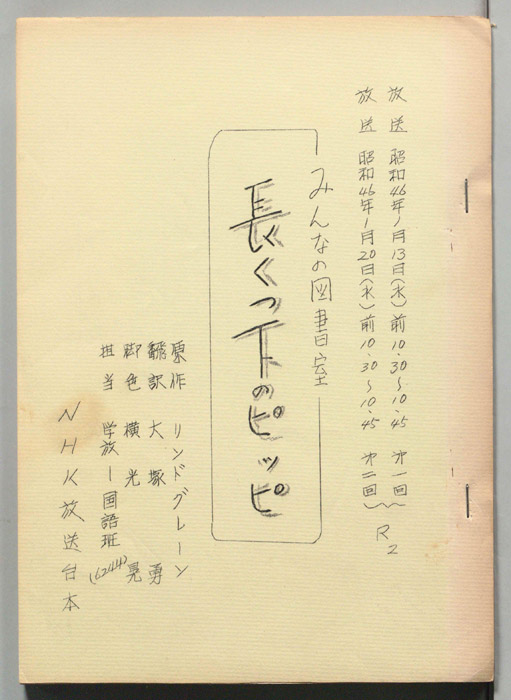 放送 昭和46年1月13日(水)前10.30〜10.45 第一回
放送 昭和46年1月20日(水)前10.30〜10.45 第二回
R2
みんなの図書室
長くつ下のピッピ
原作 リンドグレーン
翻訳 大塚 勇
脚色 横光 晃
担当 学放-国語班(6244)
NHK放送台本